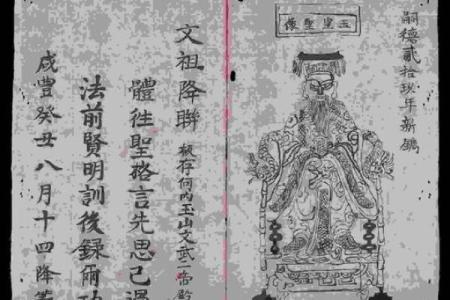 嗣德貳拾玖年新鐫
玉皇聖像
文祖降聯 板存何內玉山文武二帝殿
體往聖格言先思己過
法前賢明訓後録爾功
咸豐癸丑八月十四降